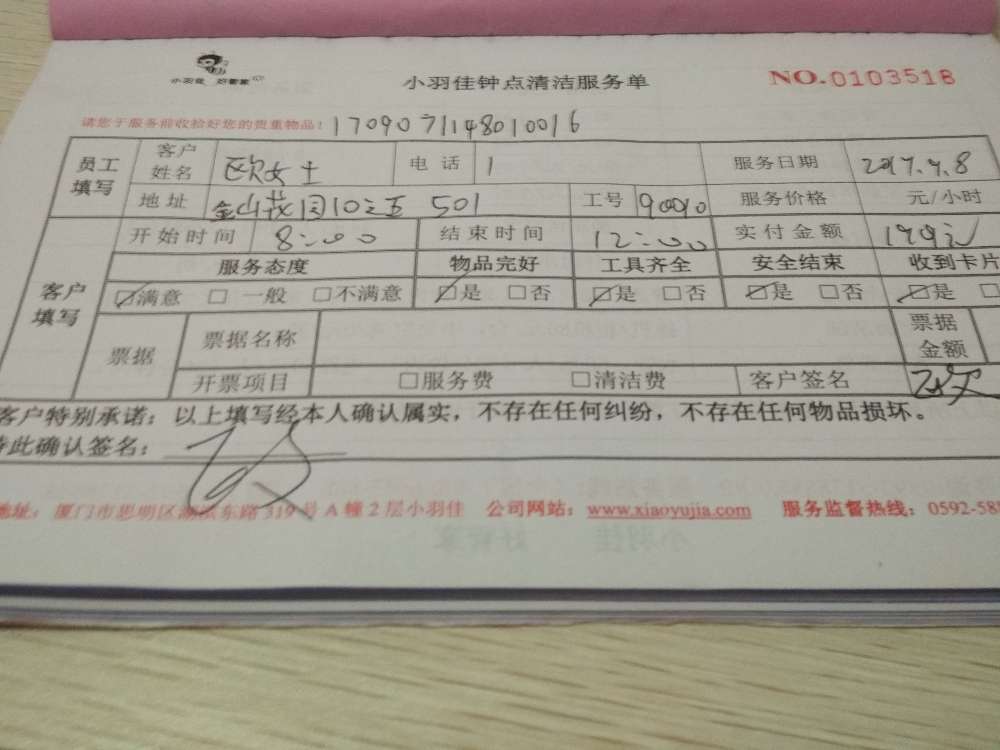 小羽佳 好管家
小羽佳钟点清洁服务单
NO.0103518
请您于服务前收拾好您的贵重物品! 1709071148010016
员工填写 客户姓名 欧女士 电话 1 服务日期 2017.9.8
地址 金山花园10之五 501 工号 90010 服务价格 元/小时
客户填写 开始时间 8:00 结束时间 12:00 实付金额
服务态度 物品完好 工具齐全 安全结束 收到卡片
☑满意 □一般 □不满意 ☑是 □否 ☑是 □否 ☑是 □否 ☑是 □
票据 票据名称 票据金额
开票项目 □服务费 □清洁费 客户签名 欧
客户特别承诺:以上填写经本人确认属实,不存在任何纠纷,不存在任何物品损坏。
特此确认签名:
地址:厦门市思明区湖滨东路319号A幢2层小羽佳 公司网站:www.xiaoyujia.com 服务监督热线:0592-588